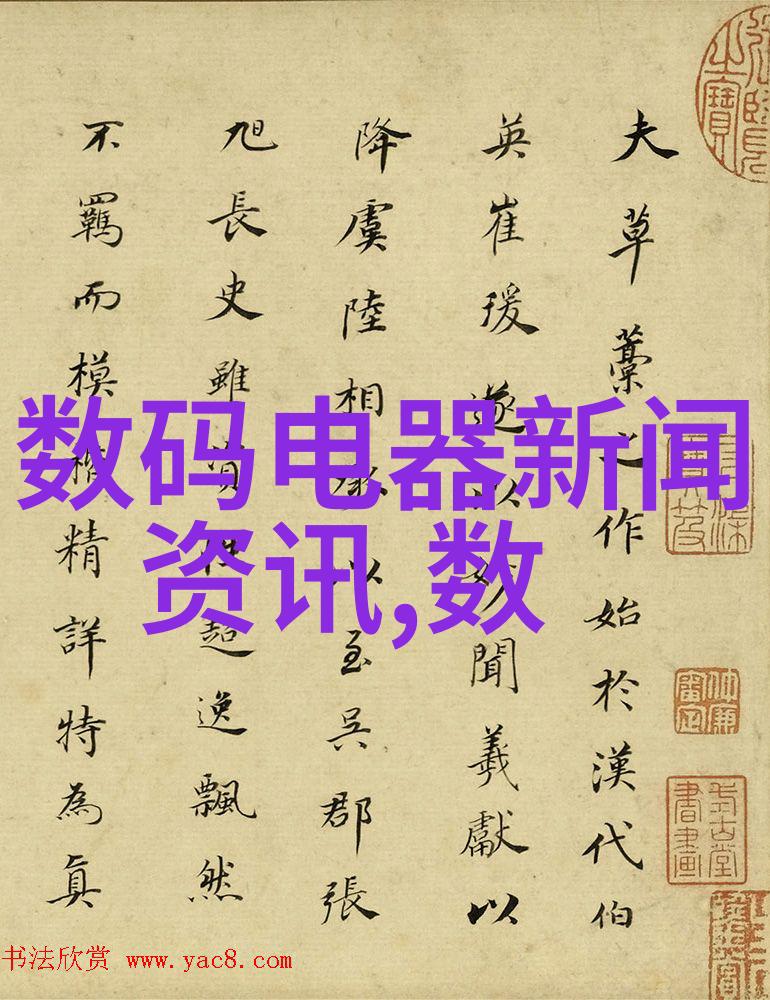 夫草藁之作始於漢代伯
英崔瑗遂以妙聞羲獻以
降虞陸相承以至吳郡張
旭長史雖資性超逸飄然
不羈而模楷精詳特為真
数码电器新闻
资讯,数
书法欣赏 www.yac8.com